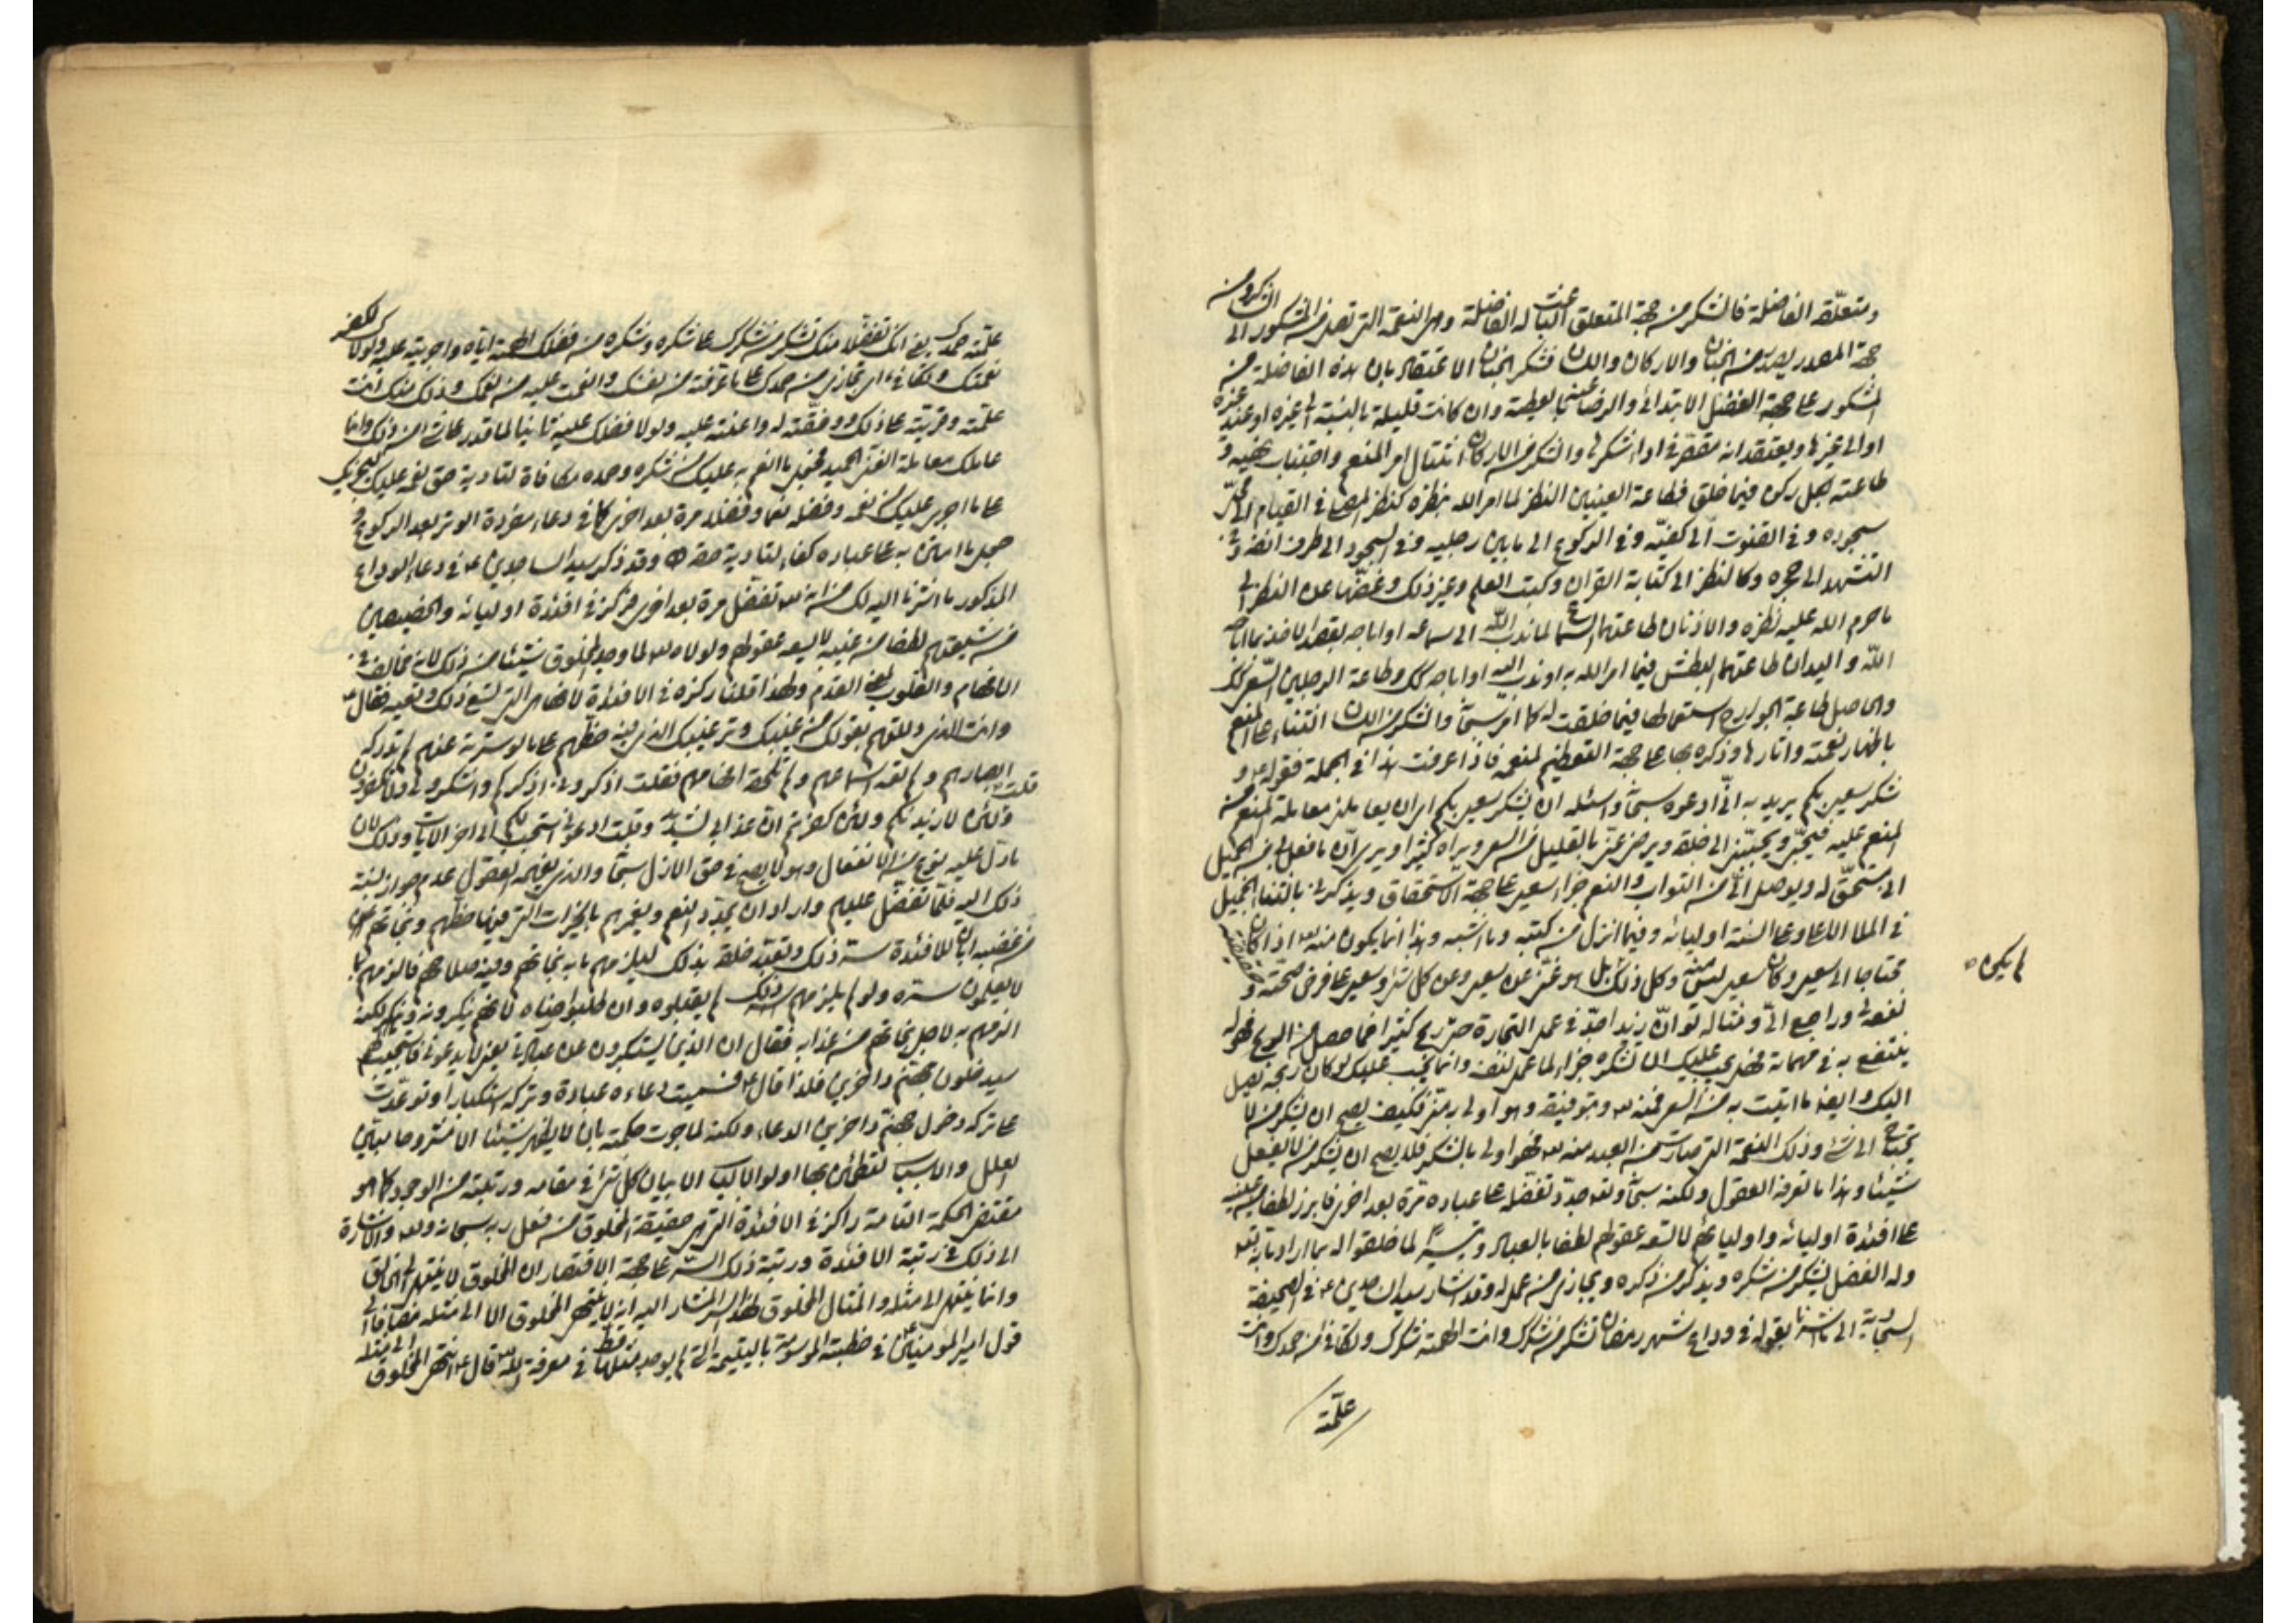 ومتعلّقه الفاضلة فالشكر من جهة المتعلق عنت الباء له الفاضلة وهى النعمة التى تصل من المشكور الى الشاكر ومن
جهة المصدر يصدر من الجنان والاركان واللسان فشكر الجنان الاعتقاد بان هذه الفاضلة من
المشكور على جهة الفضل الابتدائى والرضا بالعطية وان كانت قليلة بالنسبة الى غيره او عند غيره
او الى غيرها ويعتقد انه مقصّر فى اداء شكرها والشكر من الاركان امتثال امر المنعم واجتناب نهيه و
طاعته بكل ركن فيما خلق فطاعة العينين النظر لما امر الله بنظره كنظر المصلى فى القيام الى محلّ
سجوده وفى القنوت الى كفيّه وفى الركوع الى ما بين رجليه وفى السجود الى طرف انفه وفى
التشهد الى حجره وكالنظر الى كتابة القرآن وكتب العلم وغير ذلك وغضّها عن النظر الى
ما حرم الله عليه نظره والاذنان طاعتهما السماع لما ندب الله الى سماعه او اباحه بقصد الاخذ بما اباحه
الله واليدان طاعتهما البطش فيما امر الله به او ندب اليه او اباحه كك وطاعة الرجلين السعى كذلك
والحاصل طاعة الجوارح استعمالها فيما خلقت له كما امر سبحانه والشكر من اللسان الثناء على المنعم
باظهار نعمته واثارها وذكره بها على جهة التعظيم لنعمه فاذا عرفت هذا فى الجملة فقوله ع و
شكر سعيى بكم يريد به انّى ادعوه سبحانه واسئله ان يشكر سعيى بكم اى ان يعاملنى معاملة المنعم من
المنعم عليه فيحبّنى ويحبّبنى الى خلقه ويرضى عنّى بالقليل من السعى ويراه كثيرا ويرى انّ ما فعل لى من الجميل
انى مستحقّ له ويوصل الىّ من الثواب والنعم جزاء سعيى على جهة الاستحقاق ويذكرنى بالثناء الجميل
فى الملا الاعلى وعلى السنة اوليائه وفيما انزل من كتبه وما اشبه وهذا انما يكون منه تع اذا كان
محتاجا الى سعيى وكان سعيى ليس منه وكل ذلك بل هو غنى عن سعيى وعن كل شئ وسعيى على فرض صحّته و
لم يكن صح
نفعه لى وراجع الىّ ومثاله لو انّ زيدا جدّ فى عمل التجارة حتى ربح كثيرا فما حصل من الربح فهو له
ينتفع به فى مهماته فهل يجب عليك ان تشكره جزاء لما عمل لنفسه وانما يجب عليك لو كان ربحه يصل
اليك وايضا ما اتيت به من السعى فمنه تع وبتوفيقه وهو اولى به منّى فكيف يصح ان يشكر من لا
يحتاج الى شئ وذلك النعمة التى صارت من العبد منه تع فهو اولى بالشكر فلا يصح ان يشكر من لا يفعل
شيئا وهذا ما تعرفه العقول ولكنه سبحانه وتع جدّد تفضّله على عباده مرّة بعد اخرى فابرز لطفا من غيبه
على افئدة اوليائه واوليائهم لا تسعه عقولهم لطفا بالعباد وتيسيرا لما خلقوا له بما اراد تبارك وتع
وله الفضل يشكر من شكره ويذكر من ذكره ويجازى من عمل له وقد اشار سيد الساجدين ع فى الصحيفة
السجادية الى ما اشرنا بقوله فى وداع شهر رمضان تشكر من شكرك وانت الهمته شكرك وتكافى من حمدك وانت
علّمته
علّمته حمدك يعنى انك تفضّلا منك تشكر من شكرك على شكره وشكره من فضلك الهمته اياه واجريته عليه ولولا
نعمتك وتكافى اى تجازى من حمدك على ما عرفته من نفسك وانعمت عليه من نعمك وذلك منك انت
علّمته وقويته على ذلك ووفقته له واعنته عليه ولولا فضلك عليه ثانيا لما قدر على شئ من ذلك وانما
عاملك معاملة الغنى الحميد فجعل ما انعم به عليك من شكره وحمده مكافاة لتأدية حق نعمه عليك
على ما اجرى عليك من نعمه وفضله نعما وفضلا مرة بعد اخرى كما فى دعاء مفردة الوتر بعد الركوع و
جعل ما امتنّ به على عباده كفاء لتأدية حقه وقد ذكر سيد الساجدين ع فى دعاء الوداع
المذكور ما اشرنا اليه لك من انه تع تفضّل مرة بعد اخرى فركز فى افئدة اوليائه والخصيصين
من شيعتهم لطفا من غيبه لا يسعه عقولهم ولولاه تع لما وجد المخلوق شيئا من ذلك لانه مخالف
الافهام والقلوب لغير القدم ولهذا قلنا ركزه فى الافئدة لانها هى التى تسع ذلك وتعيه فقال ع
وانت الذى دللتهم بقولك من غيبك وترغيبك الذى فيه حظهم على ما لو سترته عنهم لم تدركه
ابصارهم ولم تعه اسماعهم ولم تلحقه اوهامهم فقلت اذكرونى اذكركم واشكروا لى ولا تكفرون
وقلت لئن شكرتم لازيدنكم ولئن كفرتم انّ عذابى لشديد وقلت ادعونى استجب لكم الى اخر الايات وذلك لان
ما دل عليه نوع من الانفعال وهو لا يصح فى حق الازل سبحانه والذى يفهمه العقول عدم جواز نسبة
ذلك اليه فلمّا تفضّل عليهم واراد ان يجدّد النعم ويغمرهم بالخيرات التى فيها حظّهم ونجاتهم
من غضبه ابان للافئدة ستر ذلك وتعبّد خلقه بذلك ليلزمهم ما به نجاتهم وفيه صلاحهم فالزمهم بما
لا يعلمون ستره ولو لم يلزمهم ذلك لم يقبلوه وان طلبوا رضاه لانهم ينكرونه لكنه
الزمهم به لاجل نجاتهم من عذابه فقال ان الذين يستكبرون عن عبادتى يعنى لا يدعونى فاستجيب لهم
سيدخلون جهنم داخرين فلذا قال ع فسميت دعاءه عبادة وتركه استكبارا وتوعّدت
على تركه دخول جهنّم داخرين الدعاء ولكنه لما جرت حكمته بان لا يظهر شيئا الا مشروحا مبيّن
العلل والاسباب لتطمئن بها اولوا الالباب الا بيان كل شئ فى مقامه ورتبته من الوجود كما هو
مقتضى الحكمة التامة راكز فى الافئدة التى هى حقيقة المخلوق من فعل ربه سبحانه وتع والاشارة
الى ذلك فى رتبة الافئدة ورتبة ذلك السّر على جهة الاقتصار ان المخلوق لا ينتهى الى الخالق
وانما ينتهى الى مثله والمثال المخلوق لهذا السر المشار اليه انه لا ينتهى المخلوق الا الى مثله مضافا الى
قول امير المؤمنين ع فى خطبته الموسومة باليتيمة التى لم يوجد مثلها قط فى معرفة الله تع قال ع انتهى المخلوق الى مثله